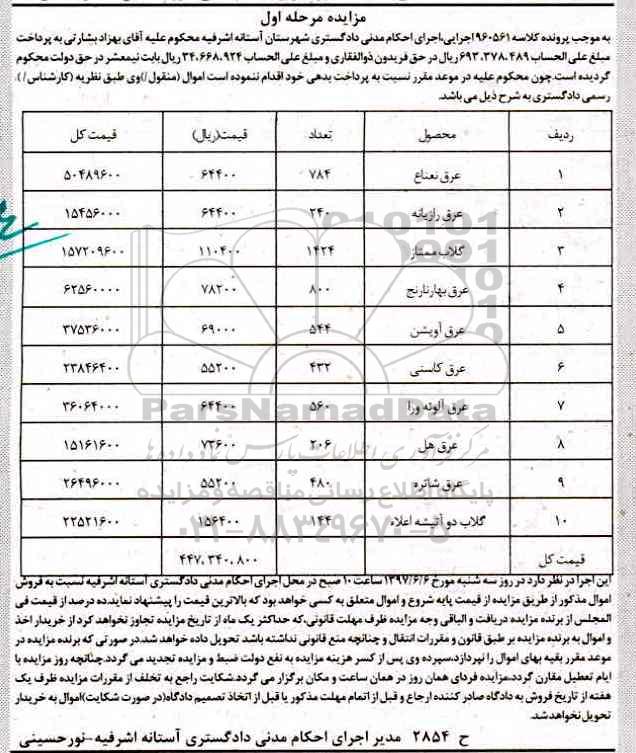 مزایده مرحله اول
به موجب پرونده کلاسه ۹۶۰۵۶۱ اجرایی،اجرای احکام مدنی دادگستری شهرستان آستانه اشرفیه محکوم علیه آقای بهزاد بشارتی به پرداخت
مبلغ علی الحساب ۶۹۳،۳۷۸،۴۸۹ ریال در حق فریدون ذوالفقاری و مبلغ علی الحساب ۳۴،۶۶۸،۹۲۴ ریال بابت نیمعشر در حق دولت محکوم
گردیده است.چون محکوم علیه در موعد مقرر نسبت به پرداخت بدهی خود اقدام ننموده است اموال (منقول/)وی طبق نظریه (کارشناس/)،
رسمی دادگستری به شرح ذیل می باشد.
ردیف محصول تعداد قیمت(ریال) قیمت کل
۱ عرق نعناع ۷۸۴ ۶۴۴۰۰ ۵۰۴۸۹۶۰۰
۲ عرق رازیانه ۲۴۰ ۶۴۴۰۰ ۱۵۴۵۶۰۰۰
۳ گلاب ممتاز ۱۴۲۴ ۱۱۰۴۰۰ ۱۵۷۲۰۹۶۰۰
۴ عرق بهارنارنج ۸۰۰ ۷۸۲۰۰ ۶۲۵۶۰۰۰۰
۵ عرق آویشن ۵۴۴ ۶۹۰۰۰ ۳۷۵۳۶۰۰۰
۶ عرق کاسنی ۴۳۲ ۵۵۲۰۰ ۲۳۸۴۶۴۰۰
۷ عرق آلوئه ورا ۵۶۰ ۶۴۴۰۰ ۳۶۰۶۴۰۰۰
۸ عرق هل ۲۰۶ ۷۳۶۰۰ ۱۵۱۶۱۶۰۰
۹ عرق شاتره ۴۸۰ ۵۵۲۰۰ ۲۶۴۹۶۰۰۰
۱۰ گلاب دو آتیشه اعلاء ۱۴۴ ۱۵۶۴۰۰ ۲۲۵۲۱۶۰۰
قیمت کل ۴۴۷،۳۴۰،۸۰۰
ParsNamadData
مرکز فرآوری اطلاعات پارس نماد داده ها
پایگاه اطلاع رسانی مناقصه و مزایده
۰۲۱-۸۸۳۴۹۶۷۰-۵
این اجرا در نظر دارد در روز سه شنبه مورخ ۱۳۹۷/۶/۶ ساعت ۱۰ صبح در محل اجرای احکام مدنی دادگستری آستانه اشرفیه نسبت به فروش
اموال مذکور از طریق مزایده از قیمت پایه شروع و اموال متعلق به کسی خواهد بود که بالاترین قیمت را پیشنهاد نماید.ده درصد از قیمت فی
المجلس از برنده مزایده دریافت و الباقی وجه مزایده ظرف مهلت قانونی،که حداکثر یک ماه از تاریخ مزایده تجاوز نخواهد کرد از خریدار اخذ
و اموال به برنده مزایده بر طبق قانون و مقررات انتقال و چنانچه منع قانونی نداشته باشد تحویل داده خواهد شد.در صورتی که برنده مزایده در
موعد مقرر بقیه بهای اموال را نپردازد،سپرده وی پس از کسر هزینه مزایده به نفع دولت ضبط و مزایده تجدید می گردد.چنانچه روز مزایده با
ایام تعطیل مقارن گردد،مزایده فردای همان روز در همان ساعت و مکان برگزار می گردد.شکایت راجع به تخلف از مقررات مزایده ظرف یک
هفته از تاریخ فروش به دادگاه صادر کننده ارجاع و قبل از اتمام مهلت مذکور یا قبل از اتخاذ تصمیم دادگاه(در صورت شکایت)اموال به خریدار
تحویل نخواهد شد.
ح ۲۸۵۴ مدیر اجرای احکام مدنی دادگستری آستانه اشرفیه-نورحسینی